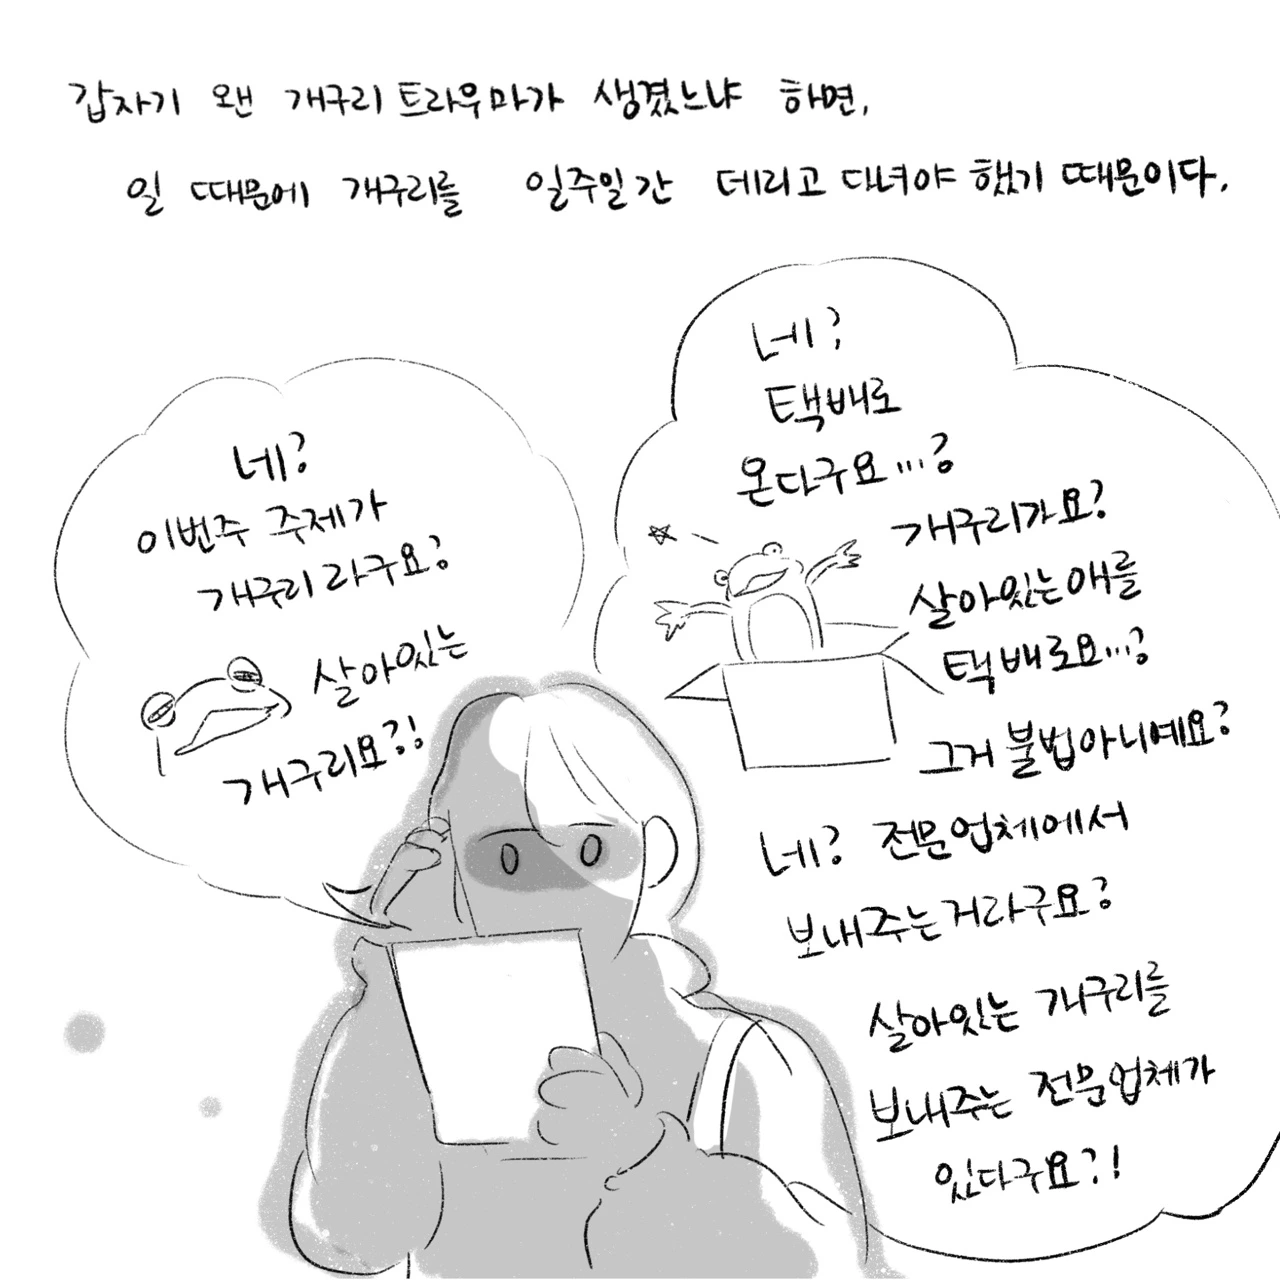 갑자기 왠 개구리 트라우마가 생겼느냐 하면,
일 때문에 개구리를 일주일간 데리고 다녀야 했기 때문이다.
네?
이번주 주제가
개구리라구요?
살아있는
개구리요?!
네?
택배로
온다구요...?
개구리가요?
살아있는애를
택배로요...?
그거 불법아니예요?
네? 전문업체에서
보내주는거라구요?
살아있는 개구리를
보내주는 전문업체가
있다구요?!